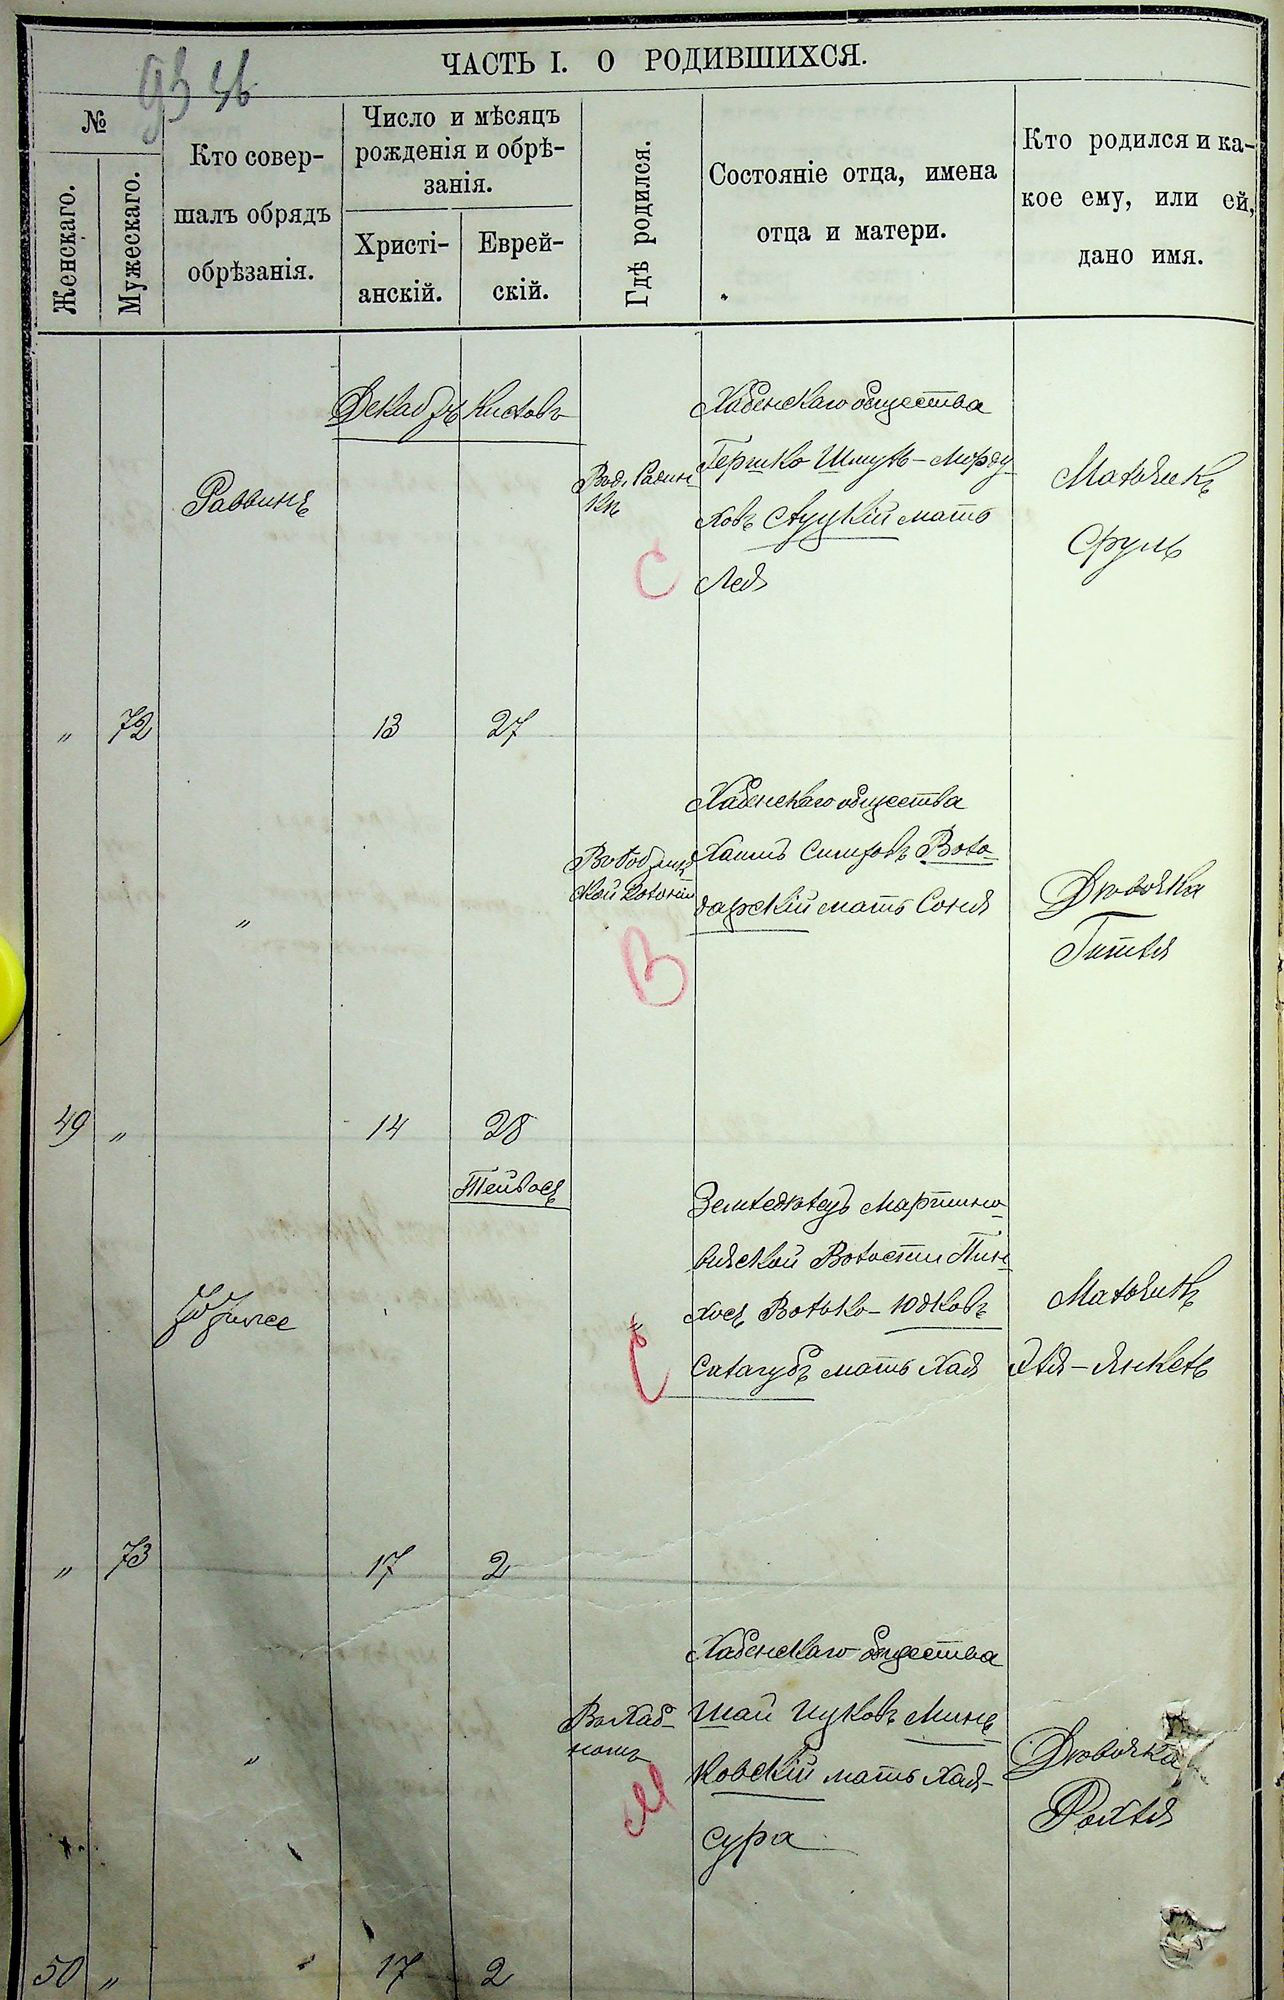 ЧАСТЬ I. О РОДИВШИХСЯ.
№
Женскаго.
Мужескаго.
Кто совер-
шалъ обрядъ
обрѣзанія.
Число и мѣсяцъ
рожденія и обрѣ-
занія.
Христі-
анскій.
Еврей-
скій.
Гдѣ родился.
Состояніе отца, имена
отца и матери.
Кто родился и ка-
кое ему, или ей,
дано имя.
Декабрь Кислевъ
Раввинъ
Хабенскаго общества
Гершко Шмуль-Морду
ховъ Слуцкій мать
Лея
Мальчикъ
Сруль
С
" 72 13 27
"
Хабенскаго общества
Хаимъ Воло
дарскій мать Соня
Дѣвочка
Гитля
В
49 " 14 28
Тейвесъ
Земледѣлецъ Мартино
вичской Волости Пин
хосъ Волько-Юдковъ
мать Хая
Мальчикъ
Эля-Янкель
С
" 73 17 2
"
Хабенскаго общества
Шая Ицковъ Минь
ковскій мать Хая-
сура
Дѣвочка
Рохля
М
50 " 17 2